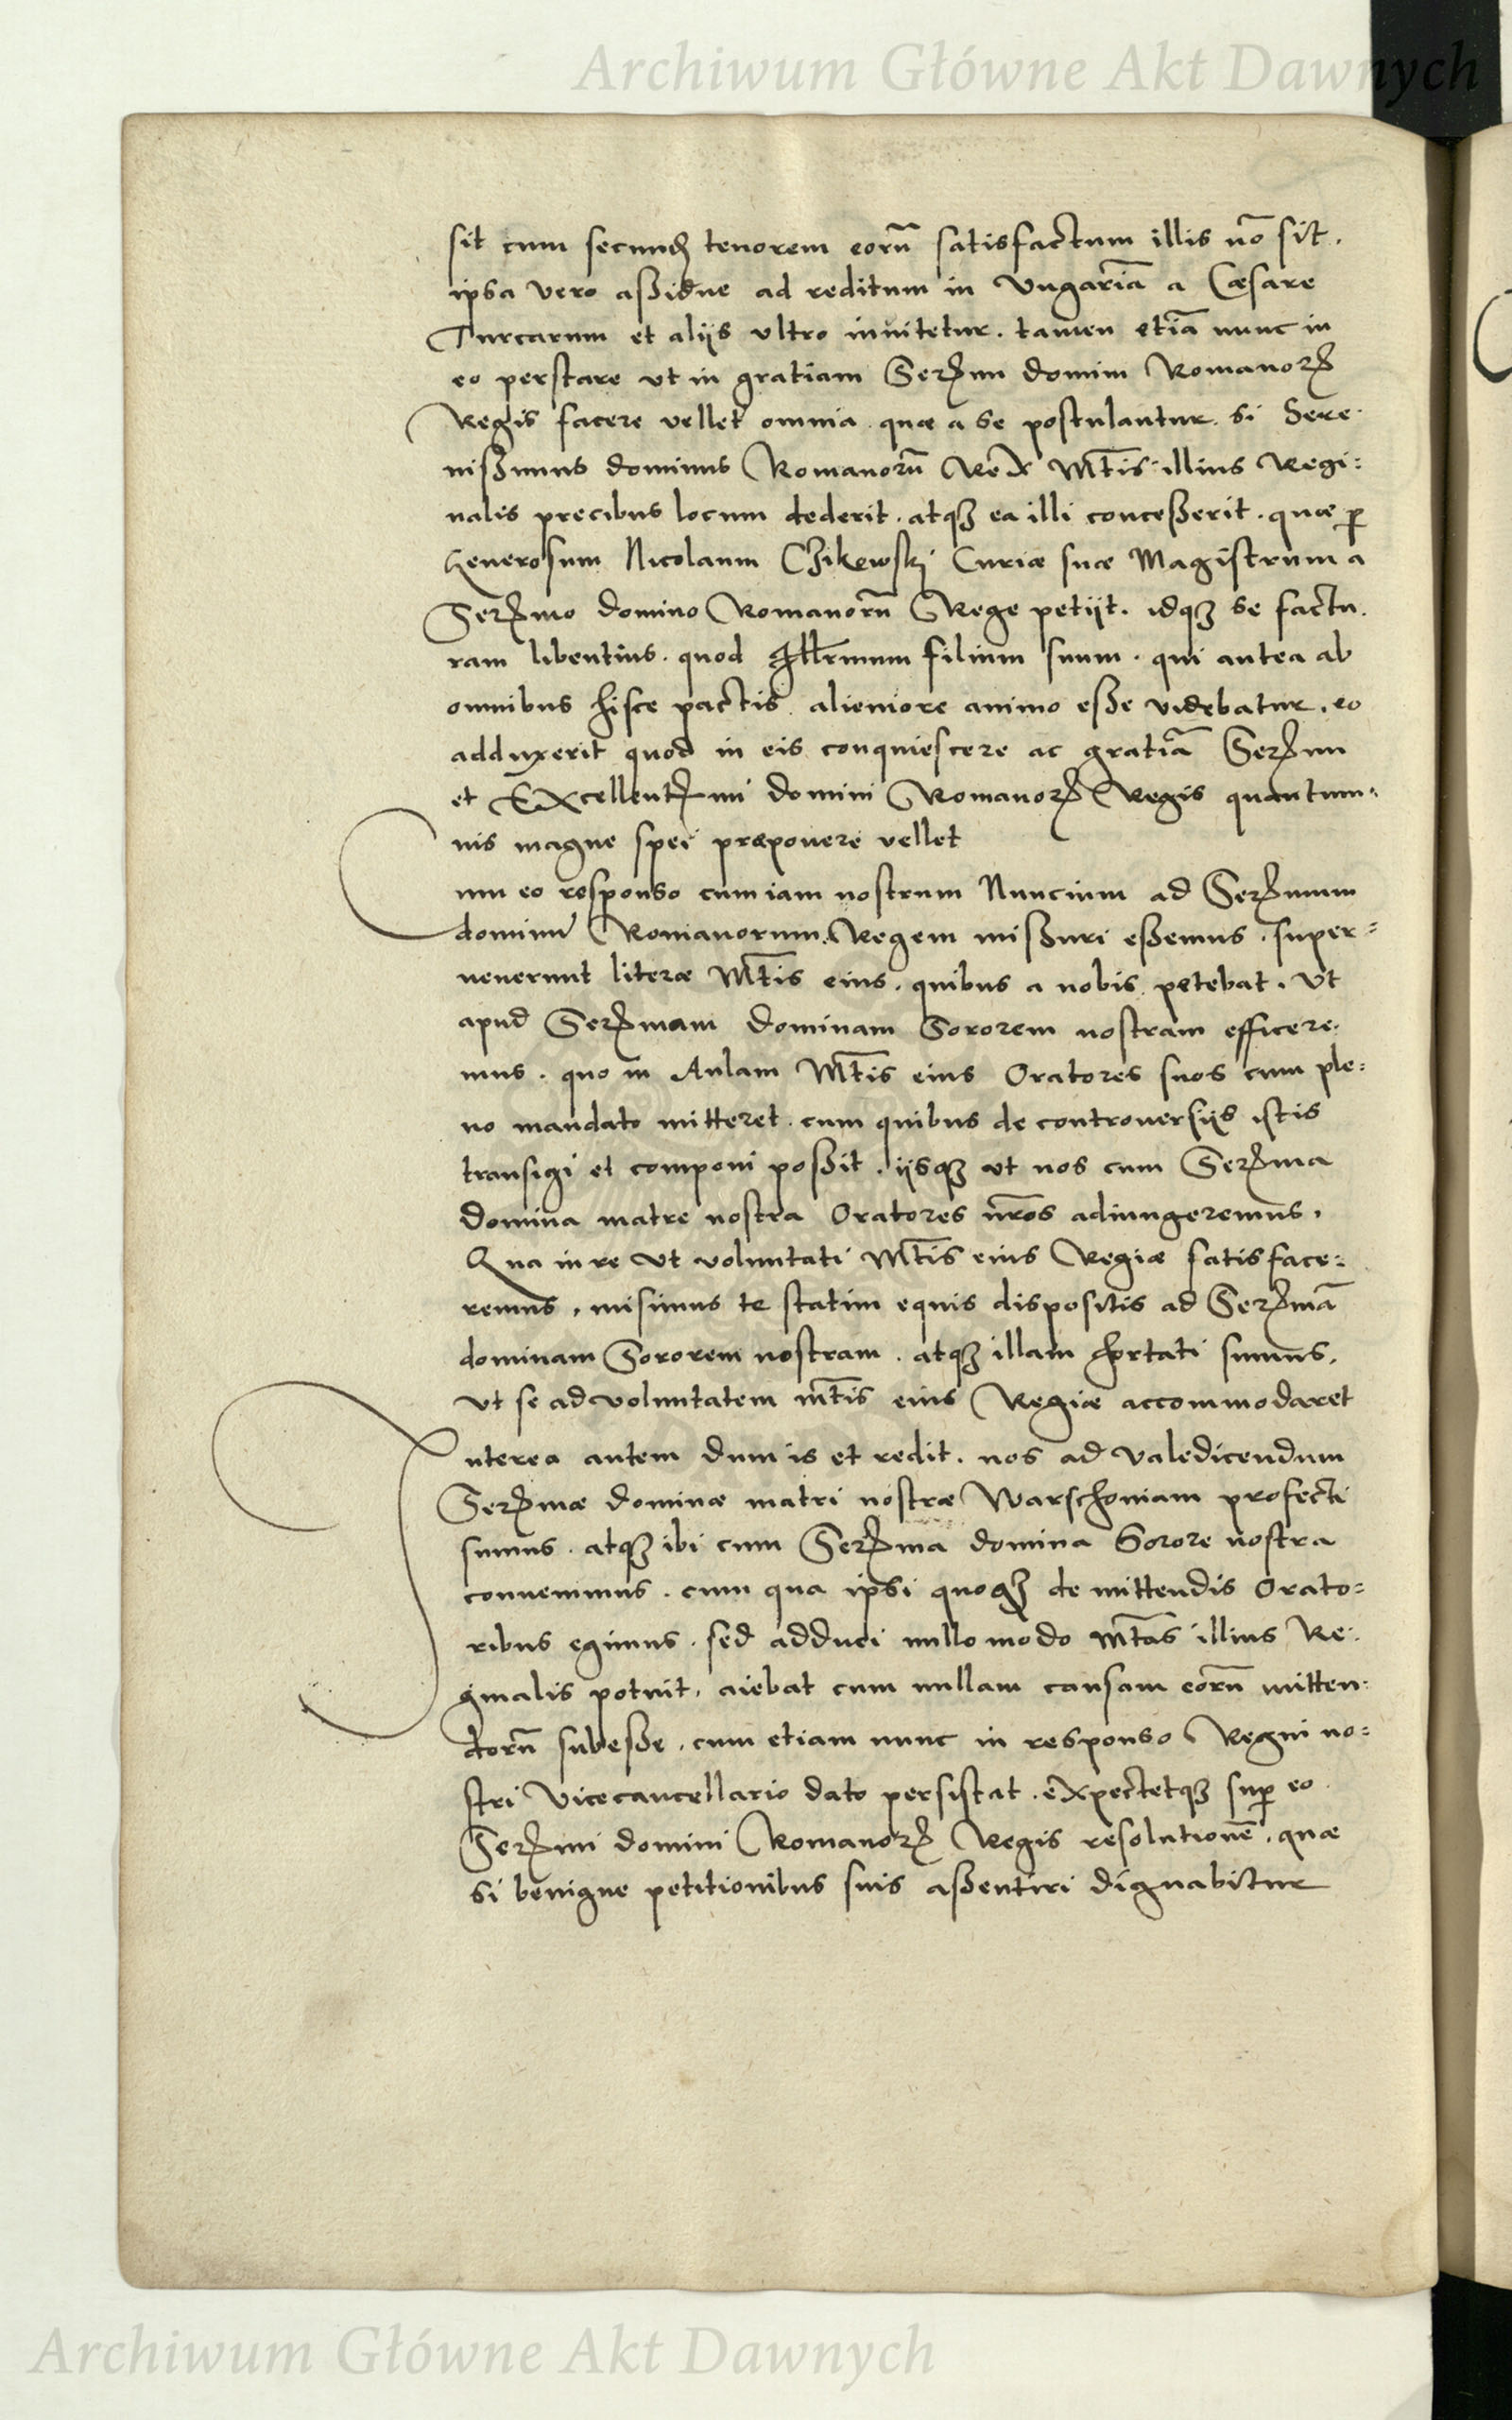 Archiwum Główne Akt Dawnych
sit cum secundũ tenorem eorũ satisfactum illis nõ sit.
ipsa vero aßidue ad reditum in Vngariã a Cæsare
Turcarum et alijs vltro inuitetur. tamen etiã nunc in
eo perstare vt in gratiam Serᵐⁱ domini Romanorꝝ
Regis facere vellet omnia quæ a se postulantur. si Sere-
nißimus dominus Romanorũ Rex Mtis illius Regi:
nalis precibus locum dederit. atqꝫ ea illi conceßerit. quæ ꝑ
Generosum Nicolaum Czikowskj Curiæ suæ Magistrum a
Serᵐᵒ domino Romanorũ Rege petijt. idqꝫ se factu.
ram libentius. quod Illrmum filium suum. qui antea ab
omnibus hisce pactis alieniore animo eße videbatur. eo
adduxerit quod in eis conquiescere ac gratiã Serᵐⁱ
et Excellentᵐⁱ domini Romanorꝝ Regis quantum-
uis magne spei præponere vellet
Cum eo responso cum iam nostrum Nuncium ad Serᵐum
dominũ Romanorum Regem mißuri eßemus. super-
uenerunt literæ Mtis eius. quibus a nobis petebat. Vt
apud Serᵐam dominam Sororem nostram efficere.
mus. quo in Aulam Mtis eius Oratores suos cum ple:
no mandato mitteret. cum quibus de controuersijs istis
transigi et componi poßit. ijsqꝫ vt nos cum Serᵐa
domina matre nostra Oratores nros adiungeremus.
Qua in re Vt voluntati Mtis eius Regiæ satisface:
remus. misimus te statim equis dispositis ad Serᵐã
dominam Sororem nostram. atqꝫ illam hortati sumus.
vt se ad voluntatem mtis eius Regiæ accommodaret
Interea autem dum is et redit. nos ad valedicendum
Serᵐæ dominæ matri nostræ Warschouiam profecti
sumus. atqꝫ ibi cum Serᵐa domina Sorore nostra
conuenimus. cum qua ipsi quoqꝫ de mittendis Orato:
ribus egimus. sed adduci nullo modo Mtas illius Re:
ginalis potuit. aiebat cum nullam causam eorũ mitten:
dorũ subeße. cum etiam nunc in responso Regni no:
stri Vicecancellario dato persistat. expectetqꝫ suꝑ eo
Serᵐⁱ domini Romanorꝝ Regis resolutionẽ. quæ
si benigne petitionibus suis aßentiri dignabitur
Archiwum Główne Akt Dawnych